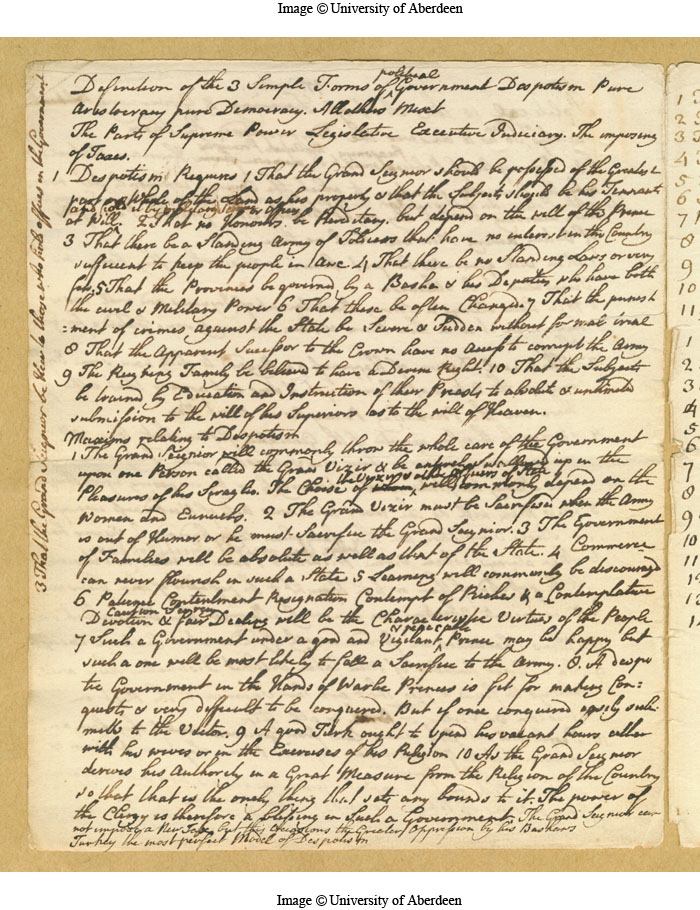 Image © University of Aberdeen
Definition of the 3 Simple Forms of political Government Despotism Pure
Aristocracy pure Democracy. All others Mixt
The Parts of Supreme Power Legislative Executive Judiciary. The imposing
of Taxes.
1 Despotism Requires 1 That the Grand Seignor should be possessed of the Greatest
part or Whole of the Land as his property & that the Subjects should be his Tennants
at Will 2 That no Honours be Hereditary. but depend on the will of the Prince
3 That there be a Standing Army of Soldiers that have no interest in the Country
sufficient to keep the people in Awe. 4 That there be no Standing Laws or very
few. 5 That the Provinces be governed by a Basha & his Deputy who have both
the civil & Military Power 6 That these be often Changed. 7 That the punish
=ment of crimes against the State be Severe & Sudden without formal trial
8 That the Apparent Successor to the Crown have no access to corrupt the Army
9 The Reigning Family be believed to have a Devine Right. 10 That the Subjects
be trained by Education and Instruction of their Priests to absolute & unlimited
submission to the will of his Superiors as to the will of Heaven.
Maxims relating to Despotism
1 The Grand Seignior will commonly throw the whole care of the Government
upon one Person called the Grand Vizir & be up in the
Pleasures of his Seraglio. The Choise of the Vizir & other officers of State will commonly depend on the
Women and Eunuchs. 2 The Grand Vizir must be Sacrificed when the Army
is out of Humor or he must Sacrifice the Grand Seignior. 3 The Government
of Families will be absolute as well as that of the State. 4 Commerce
can never flourish in such a State 5 Learning will commonly be discouraged
6 Patience Contentment Resignation Contempt of Riches & a Contemplative
Devotion & fair Dealing will be the Characteristic Virtues of the People
7 Such a Government under a good and Vigilant Prince may be happy but
such a one will be most likely to fall a Sacrifice to the Army. 8. A despo
tic Government in the Hands of Warlike Princes is fit for making Con-
quests & very difficult to be conquered. But if once conquered easily sub-
mitts to the Victor. 9 A good Turk ought to spend his vacant hours either
with his wives or in the Exercises of his Religion 10 As the Grand Seignor
derives his Authority in a Great Measure from the Religion of the Country
so that that is the onely thing that sets any bounds to it. The power of
the Clergy is therefore a blessing in Such a Government. The Grand Seignior can
not impose a New Tax, but this occasions the Greater Oppression by his Bashaws
Turkey the most perfect Model of Despotism
3 That the Grand Seignieur be Heir to those who hold offices in the Government
1
2
3
4
5
6
7
8
9
10
11
1
2
3
4
5
6
7
8
9
10
11
Image © University of Aberdeen